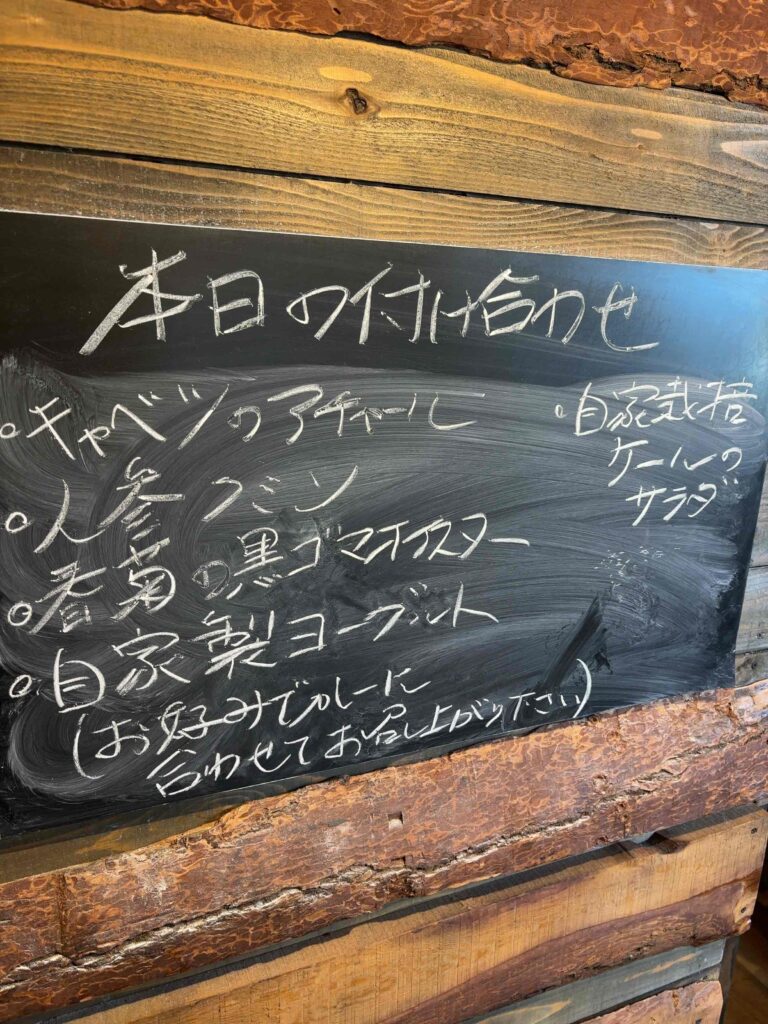 本日の付け合わせ
○キャベツのアチャール
○人参クミン
○春菊の黒ゴマオイスター
○自家製ヨーグルト
(お好みでカレーに
合わせてお召し上がり下さい)
○自家栽培
ケールの
サラダ